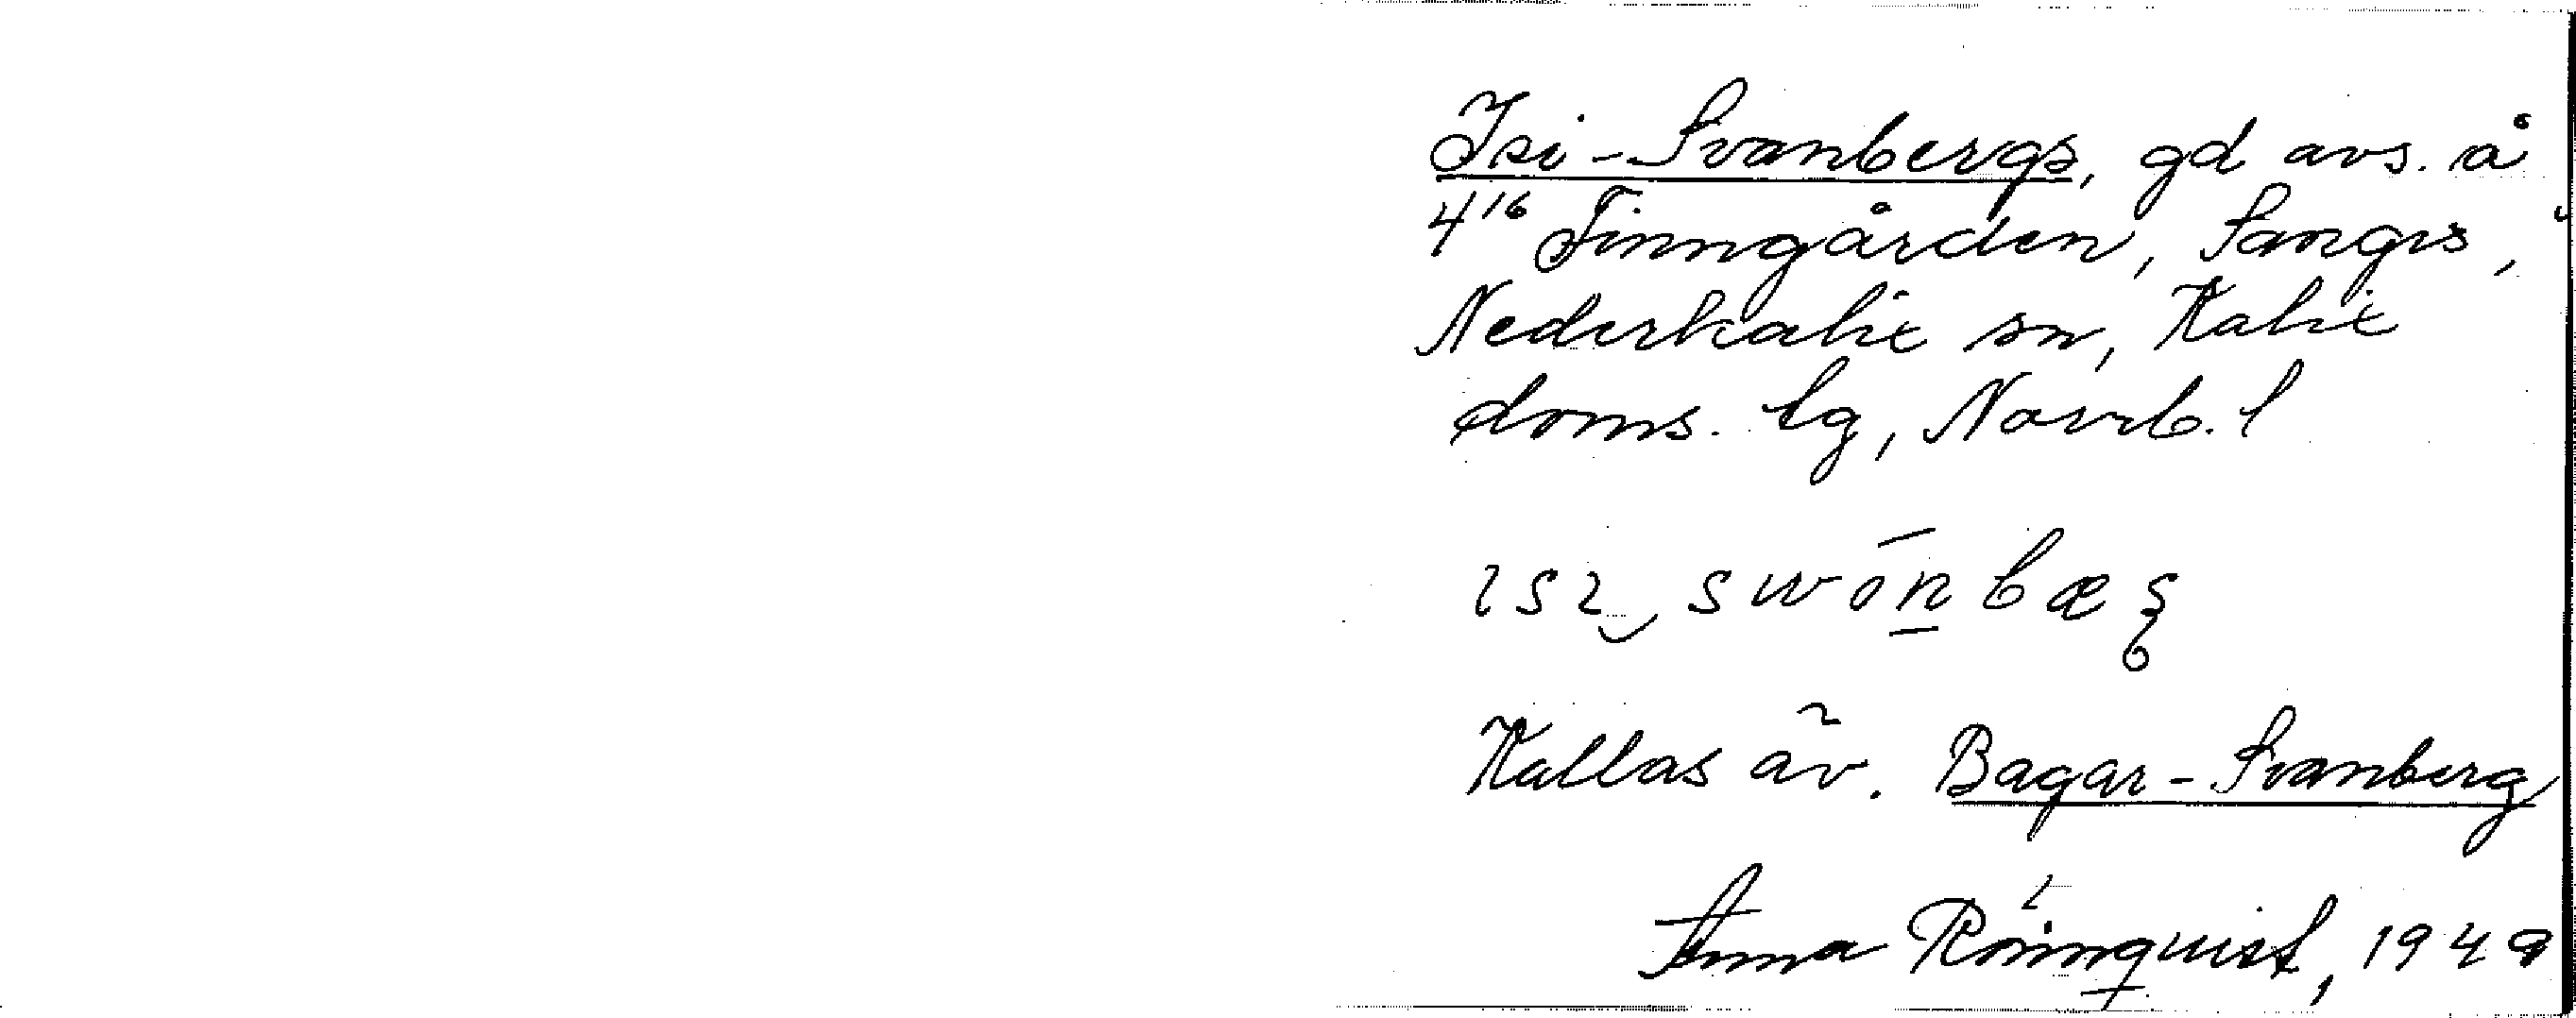 Isi-Svanbergs, gd avs. å
4¹⁶ Finngården, Sangis,
Nederkalix sn, Kalix
doms. tg, Norrb. l
ɪsɪ‿swónbæ
Kallas äv. Bagar-Svanberg
Anna Rönnquist, 1949